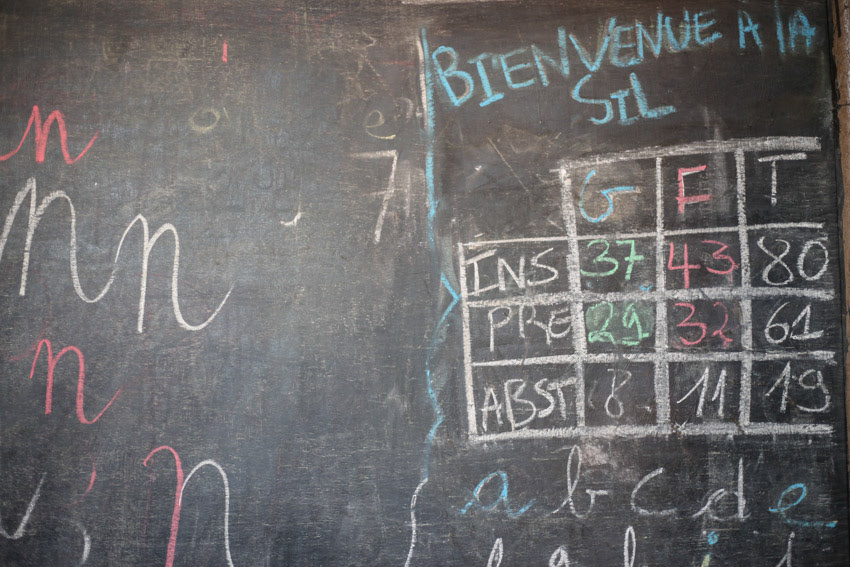 n
nn
n
n
7
BIENVENUE A lA
SIL
G F T
INS 37 43 80
PRE 29 32 61
ABST 8 11 19
a b c d e